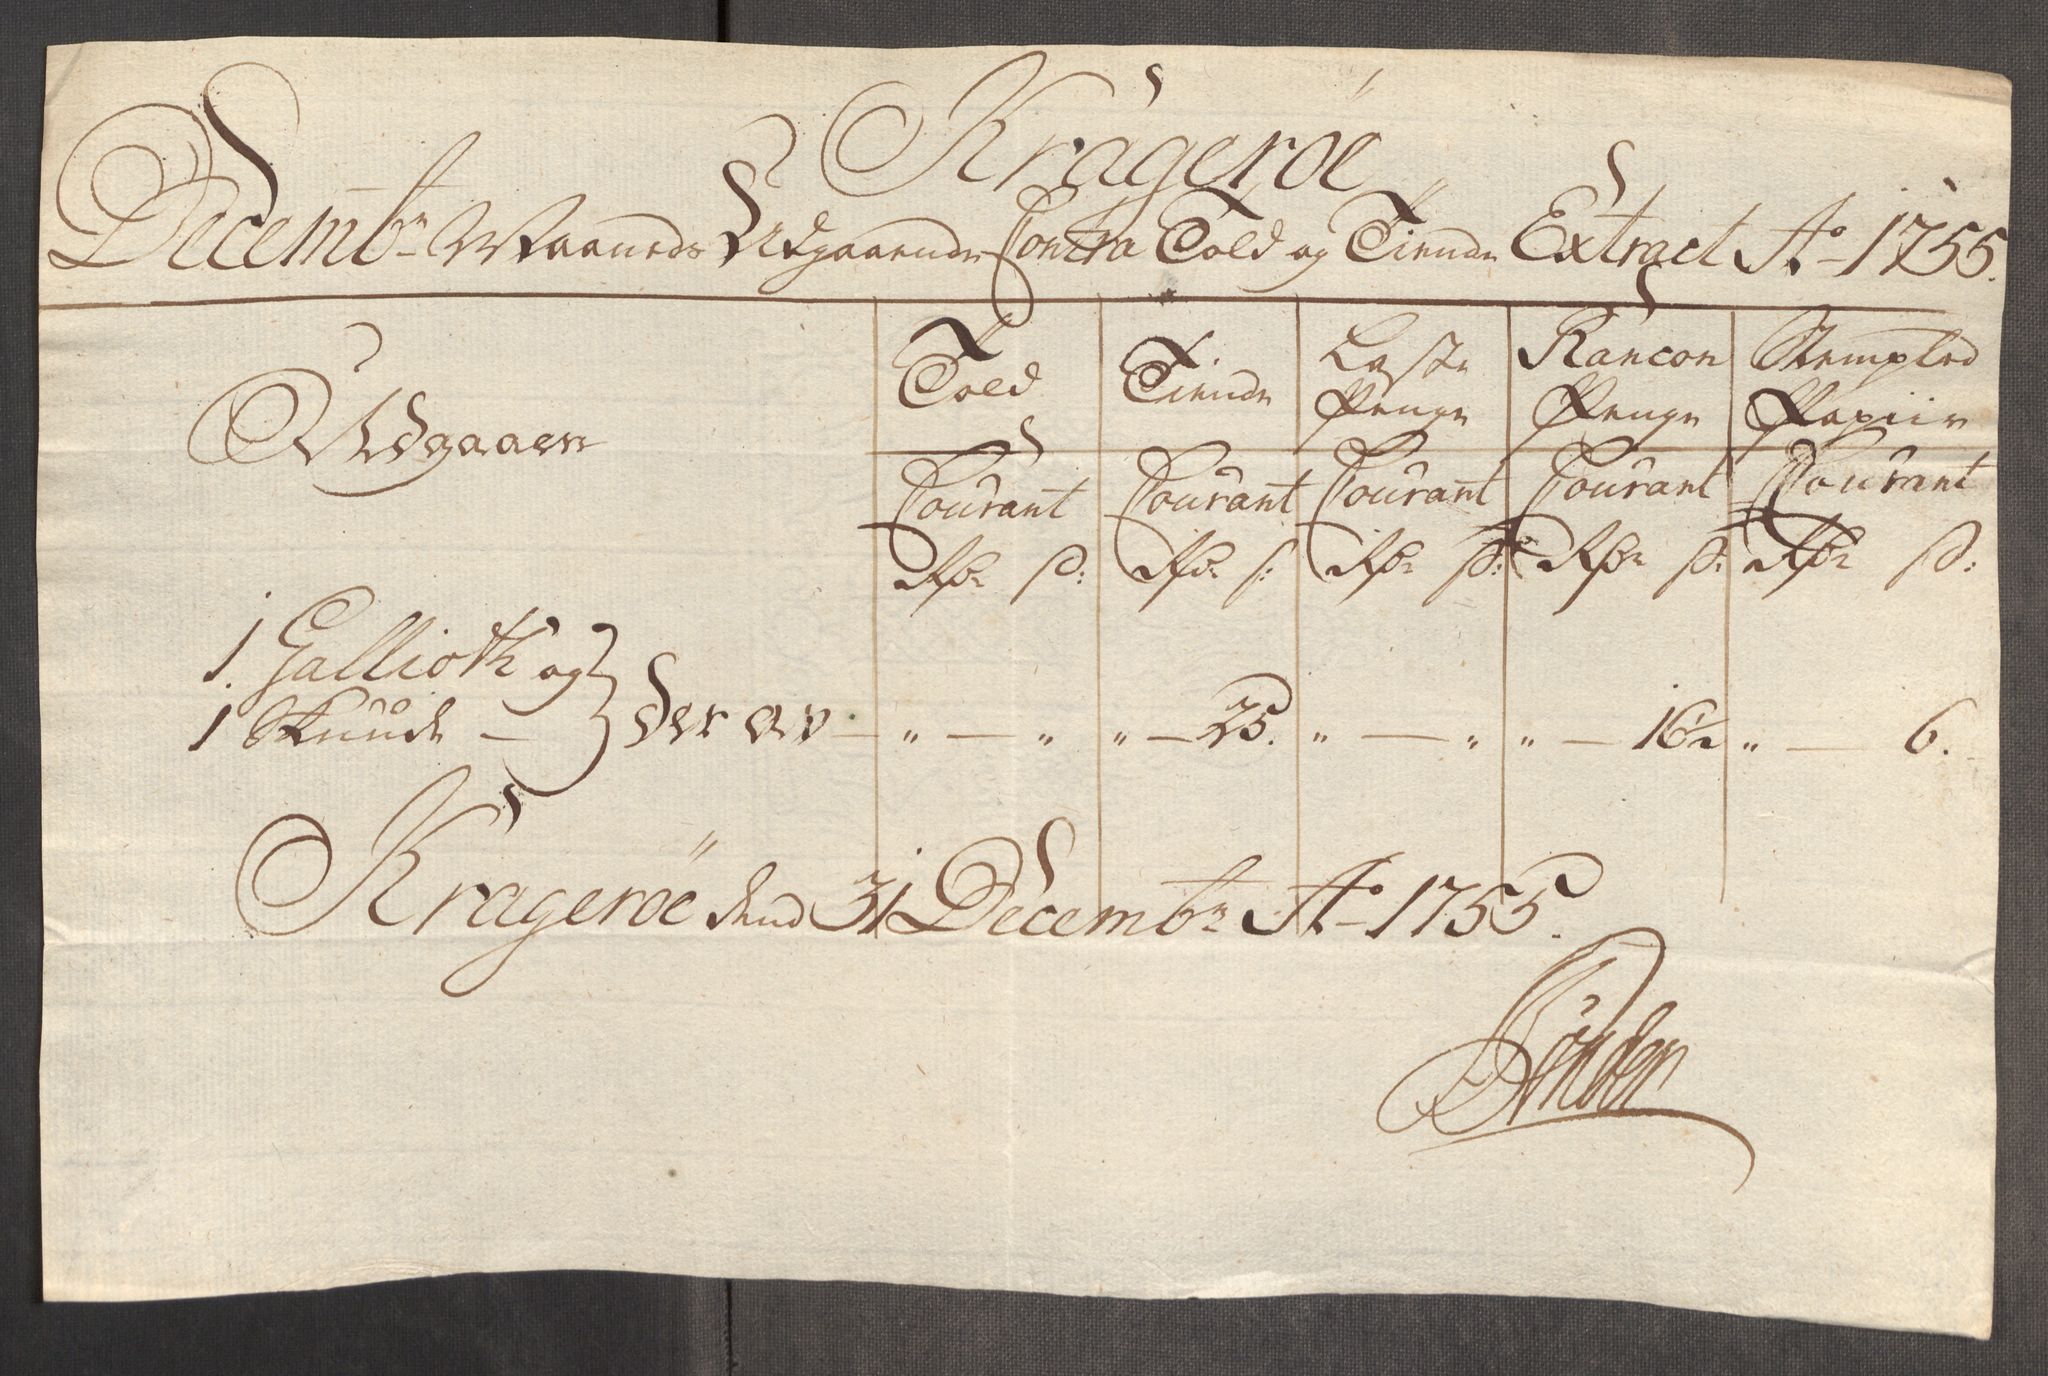 Kragerøe
Decembr Maaneds Udgaaende Contra Told og Tiende Extract Ao 1755.
Udgaaen
Told
Tiende
Laste Penge
Rancon Penge
Stempled Papiir
Courant Courant Courant Courant Courant
Rdr ß: Rdr ß: Rdr ß: Rdr ß: Rdr ß:
1 Gallioth og
1 Skude — } Der av — „ — „ „ — 25. „ — „ „ — 16½ „ — 6.
Kragerøe dend 31 Decembr Ao 1755.